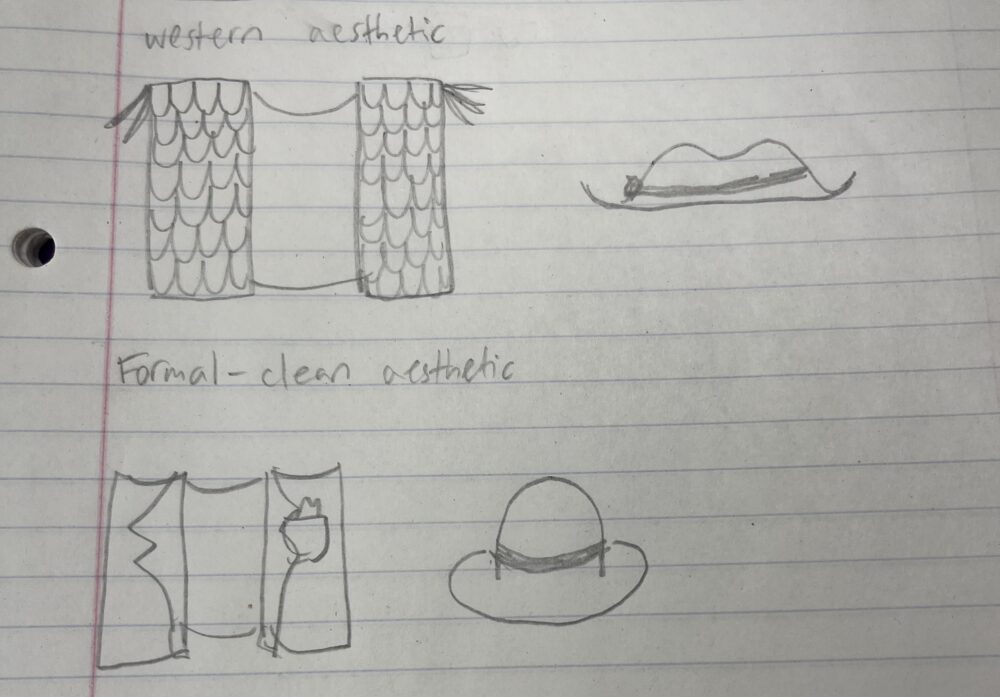 western aesthetic
Formal-clean aesthetic